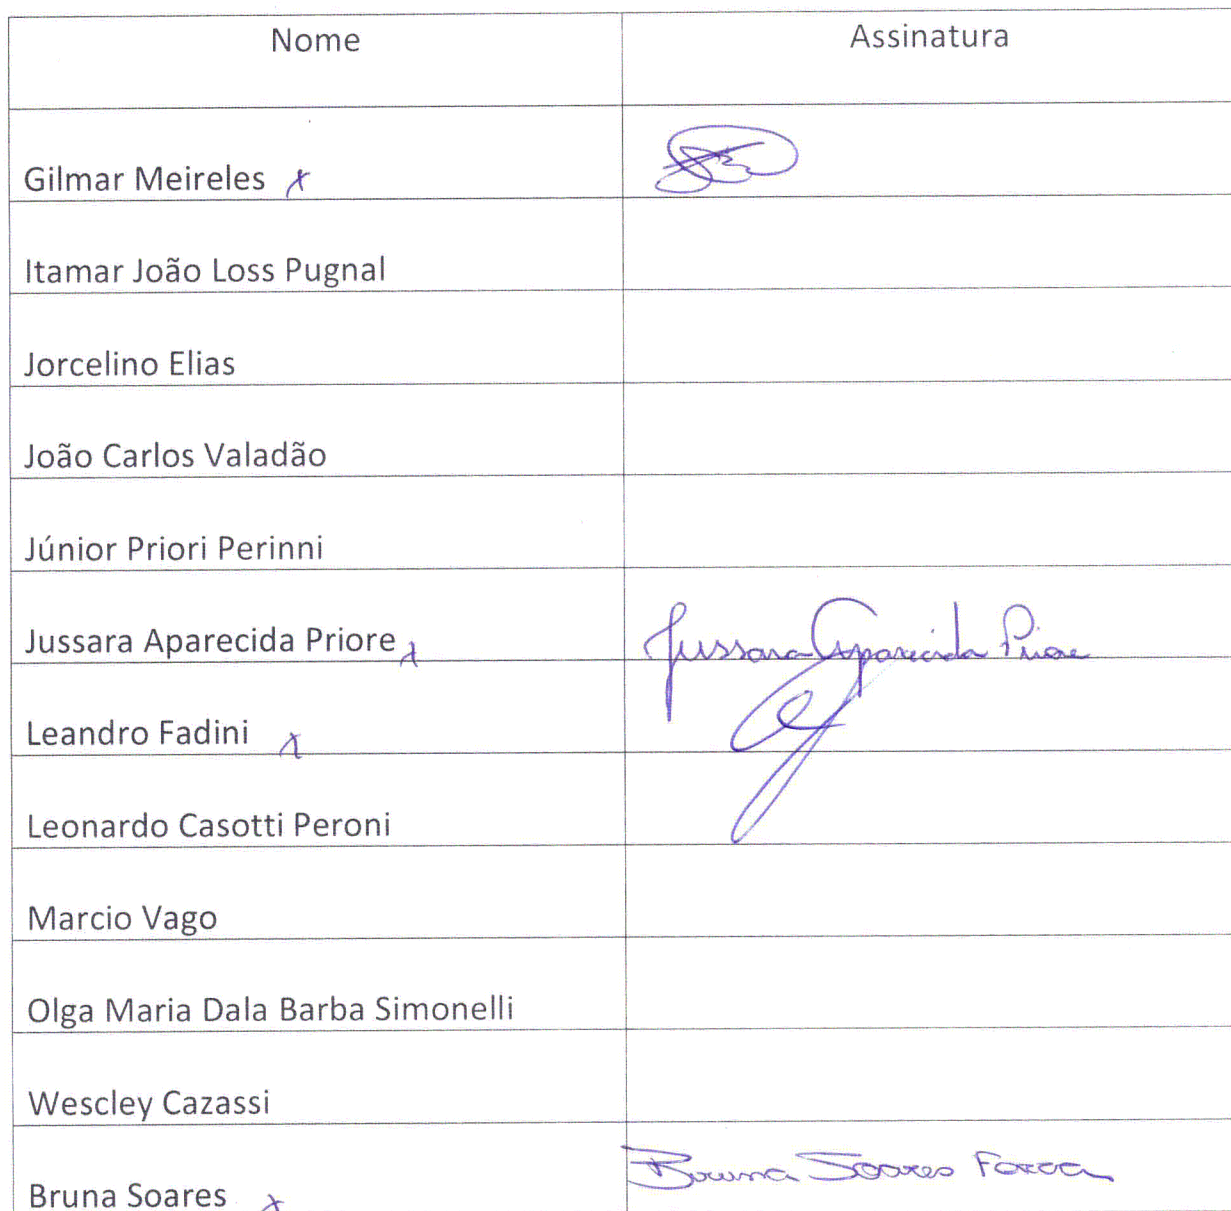 Nome Assinatura
Gilmar Meireles x
Itamar João Loss Pugnal
Jorcelino Elias
João Carlos Valadão
Júnior Priori Perinni
Jussara Aparecida Priore x Jussara Aparecida Priore
Leandro Fadini x
Leonardo Casotti Peroni
Marcio Vago
Olga Maria Dala Barba Simonelli
Wescley Cazassi
Bruna Soares x Bruna Soares